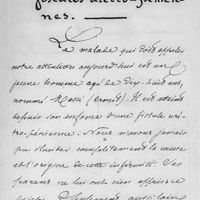 fistules urétro-périnéen-
nes.
Le malade qui doit appeler
notre attention aujourd'hui est un
jeune homme agé de dix-huit ans,
nommé (Ernest). Il est atteint
depuis son enfance d'une fistule uré-
tro-périnéenne. Nous n'avons jamais
pu élucider complètement la cause
et l'origine de cette infirmité. Ses
parents ne lui ont rien appris à ce
sujet. Seulement aussi loin